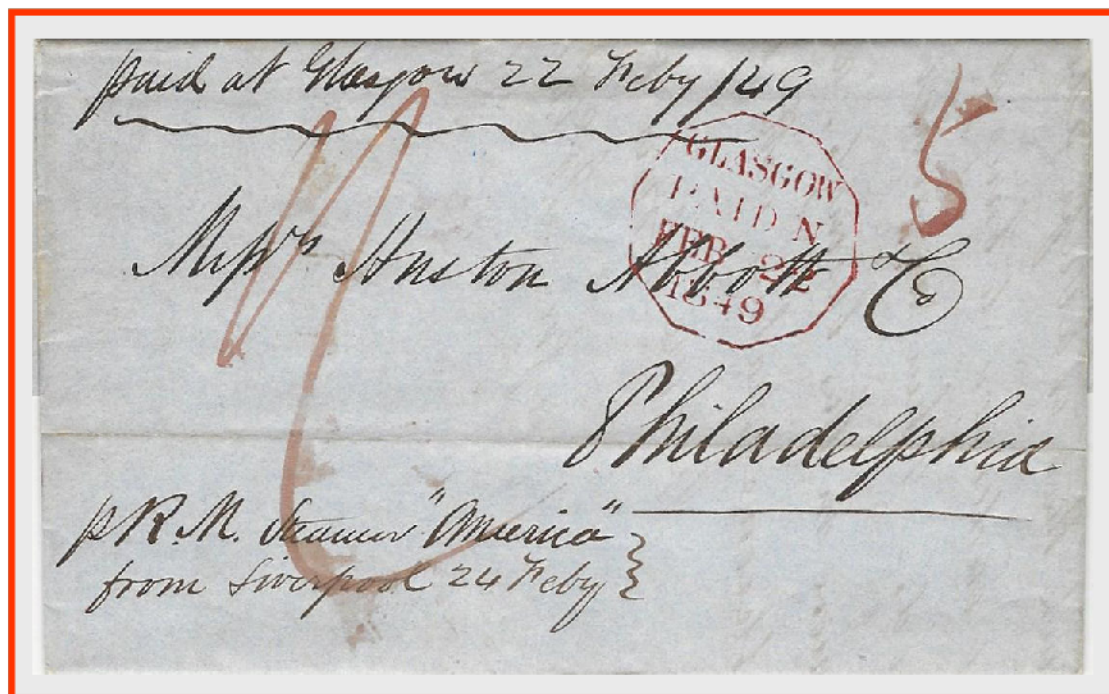 paid at Glasgow 22 Feby /49
5
GLASGOW
PAID N
FEB 22
1849
Messrs Huston Abbott & Co
Philadelphia
p R.M. Steamer "America"
from Liverpool 24 Feby